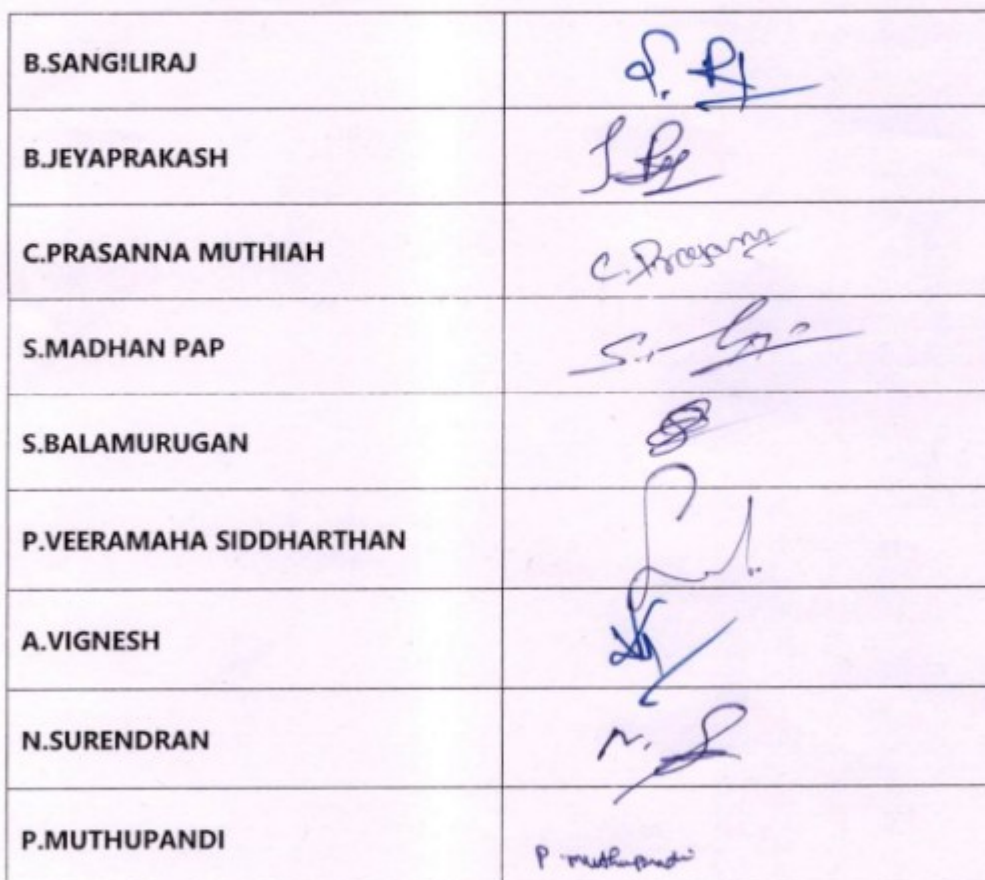 B.SANGILIRAJ
B.JEYAPRAKASH
C.PRASANNA MUTHIAH
C. Prasanna
S.MADHAN PAP
S.BALAMURUGAN
P.VEERAMAHA SIDDHARTHAN
A.VIGNESH
N.SURENDRAN
N.
P.MUTHUPANDI
P muthupandi